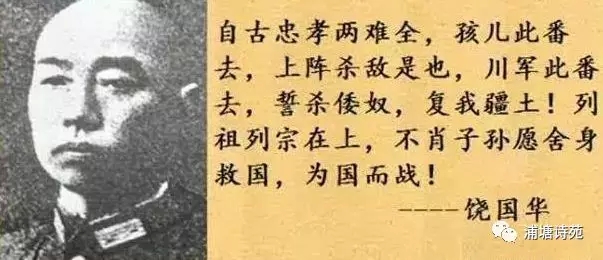 自古忠孝两难全，孩儿此番
去，上阵杀敌是也，川军此番
去，誓杀倭奴，复我疆土！列
祖列宗在上，不肖子孙愿舍身
救国，为国而战！
----饶国华
浦塘诗苑